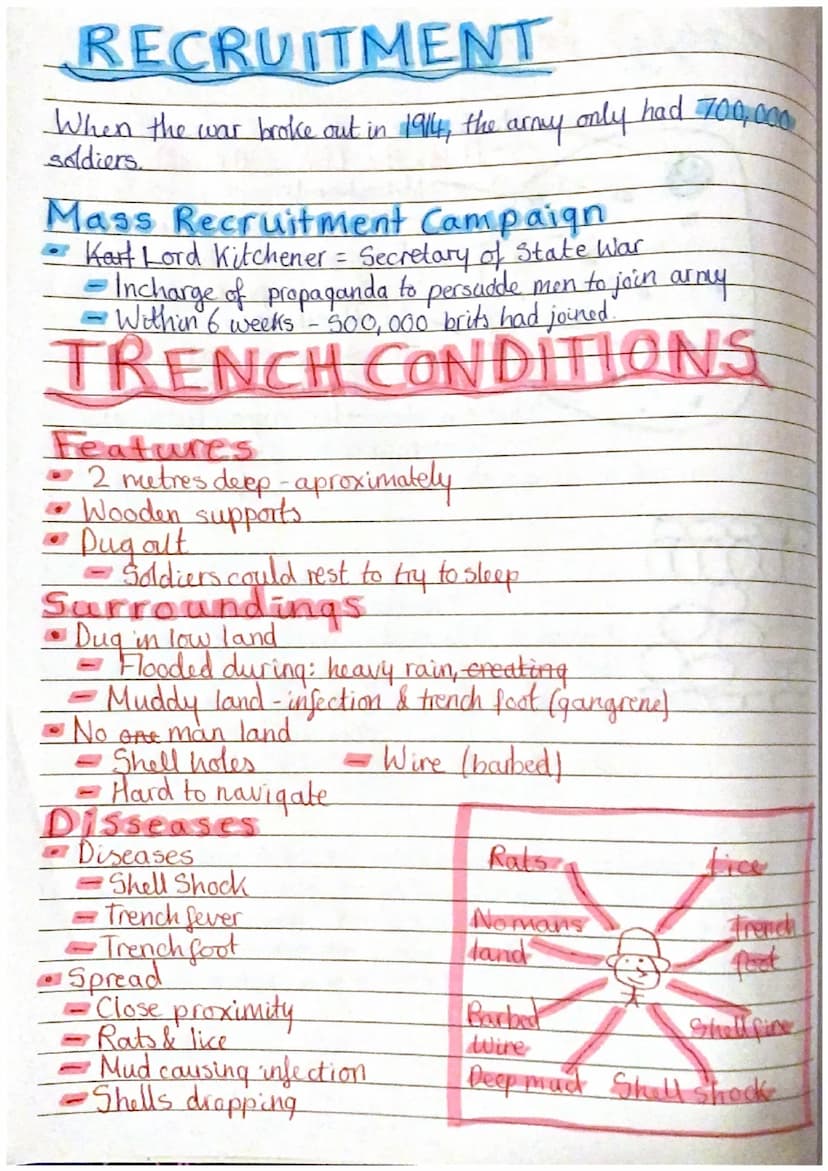 RECRUITMENT
When the war broke out in 1914, the army only had 700,000
soldiers.
Mass Recruitment Campaign
• Karl Lord Kitchener = Secretary of State War
- Incharge of propaganda to persudde men to join army
- Within 6 weeks - 500,000 brits had joined.
TRENCH CONDITIONS
Features
• 2 metres deep - aproximately
• Wooden supports
• Dug out
- Soldiers could rest to try to sleep
Surroundings
• Dug in low land
- Flooded during: heavy rain, creating
- Muddy land - infection & trench foot (gangrene)
• No one man land
- Shell holes - Wire (barbed)
- Hard to navigate
Disseases
• Diseases
- Shell Shock
- Trench fever
- Trench foot
• Spread
- Close proximity
- Rats & lice
- Mud causing infection
- Shells dropping
Rats
Lice
No mans
land
Trench
foot
Barbed
Wire
Shellfire
Deep mud
Shell shock